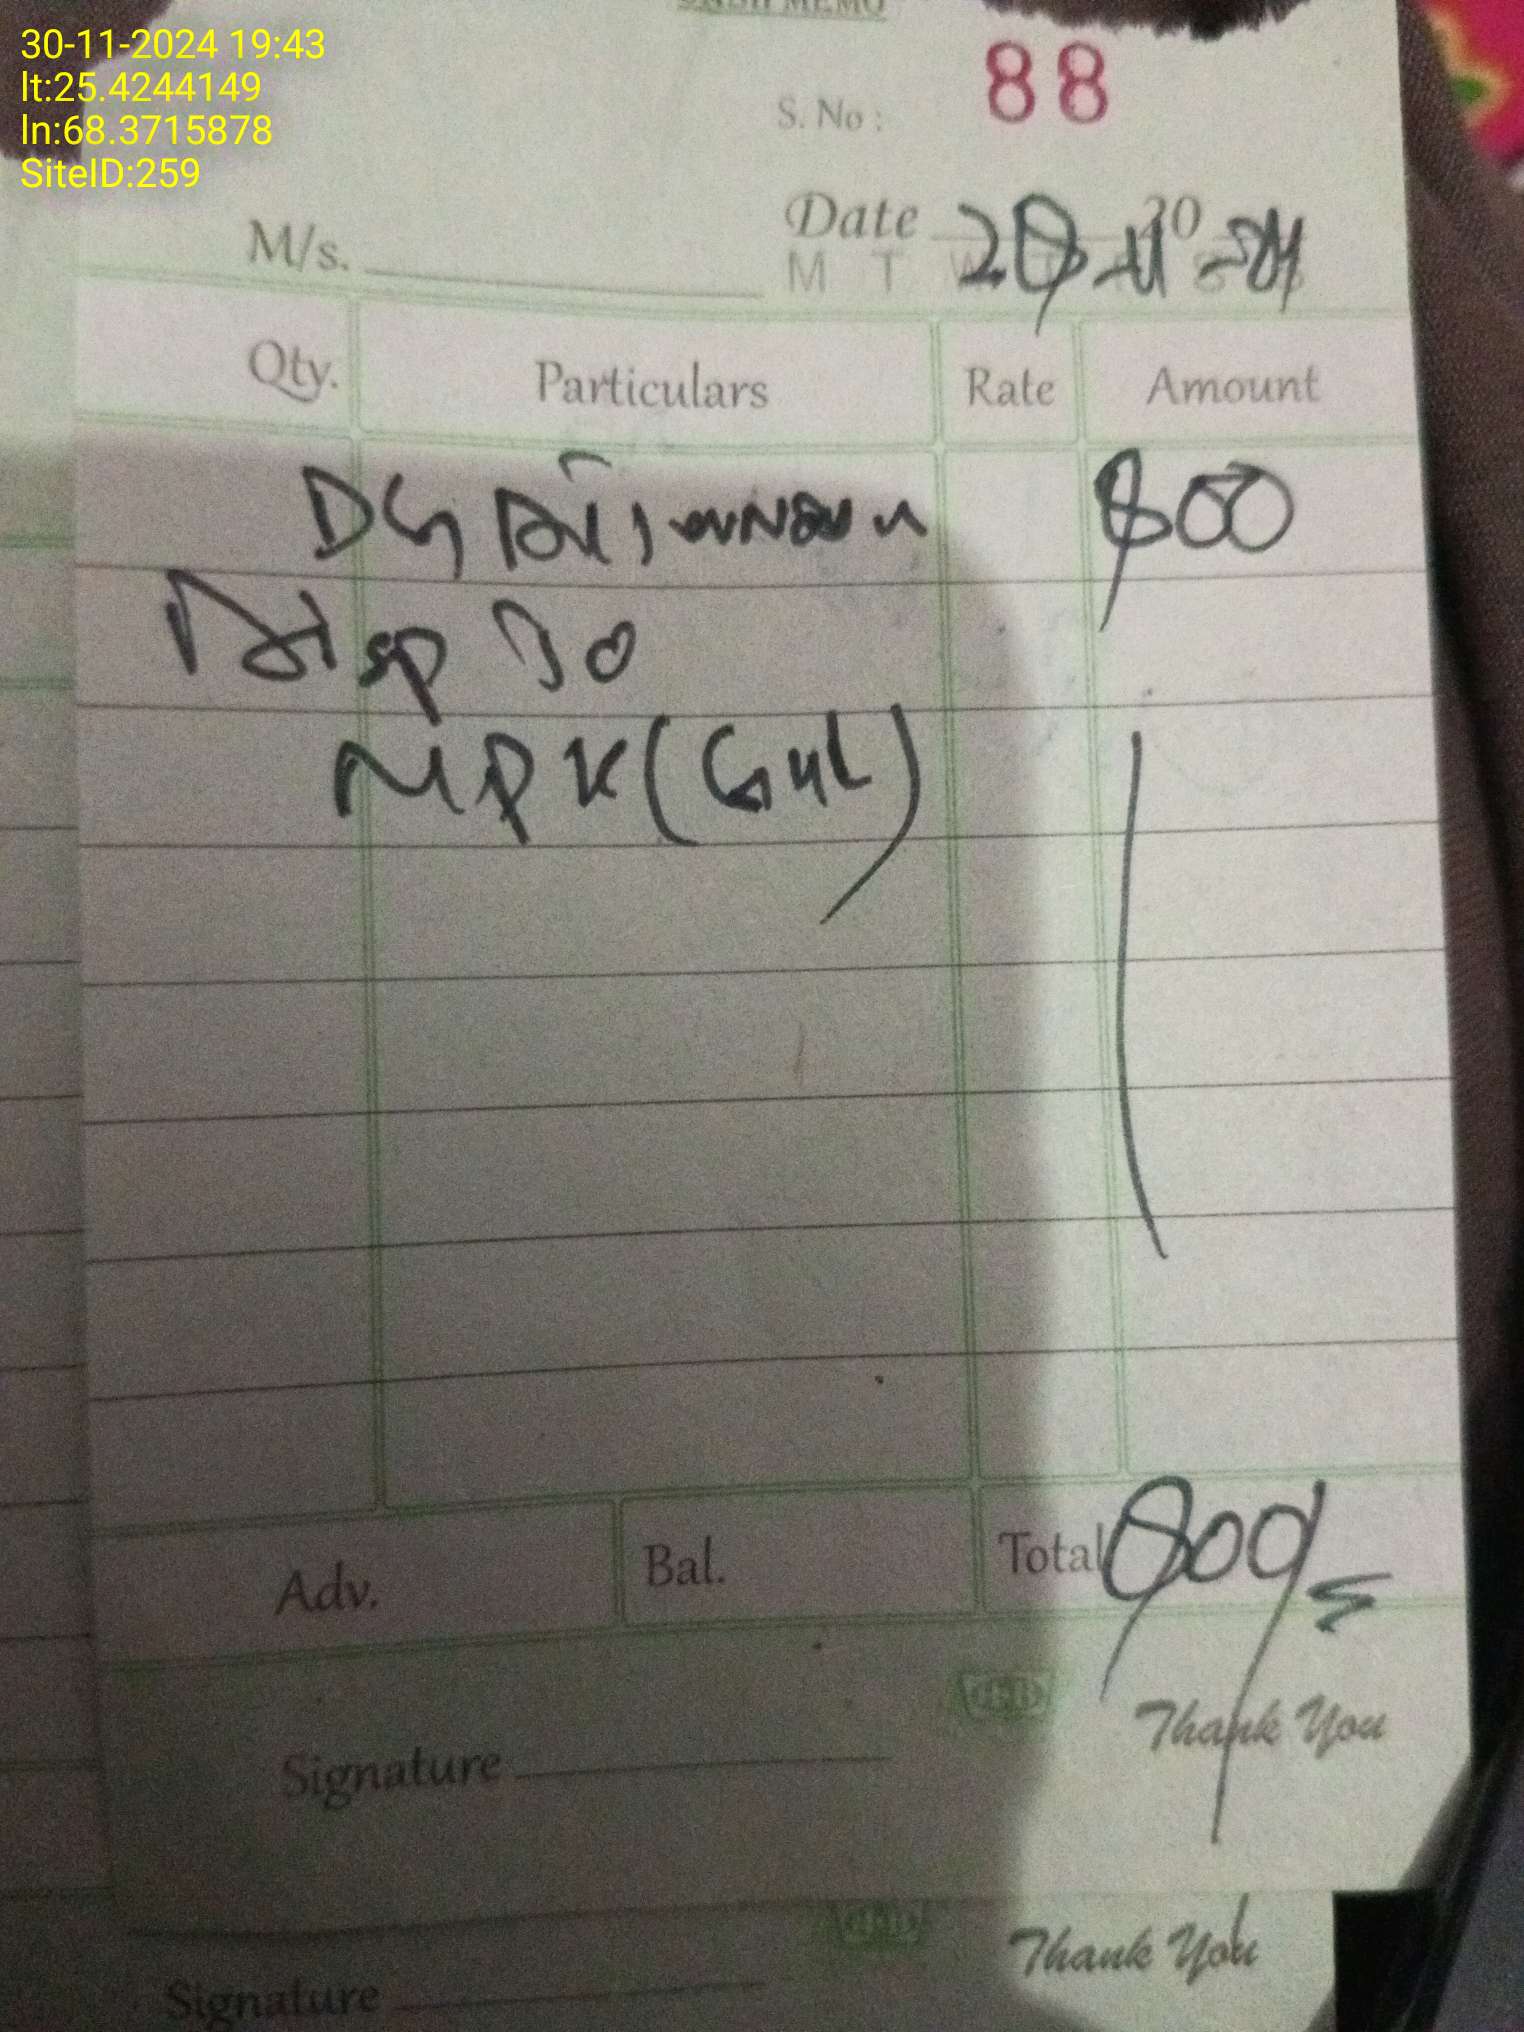 30-11-2024 19:43
lt:25.4244149
ln:68.3715878
SiteID:259
CASH MEMO
S. No : 88
M/s.
Date 20
M T W T F S S
Qty. Particulars Rate Amount
DG 800
Disp To
MPK (Gul)
Adv. Bal. Total 800/=
Signature
Thank You
Thank You
Signature